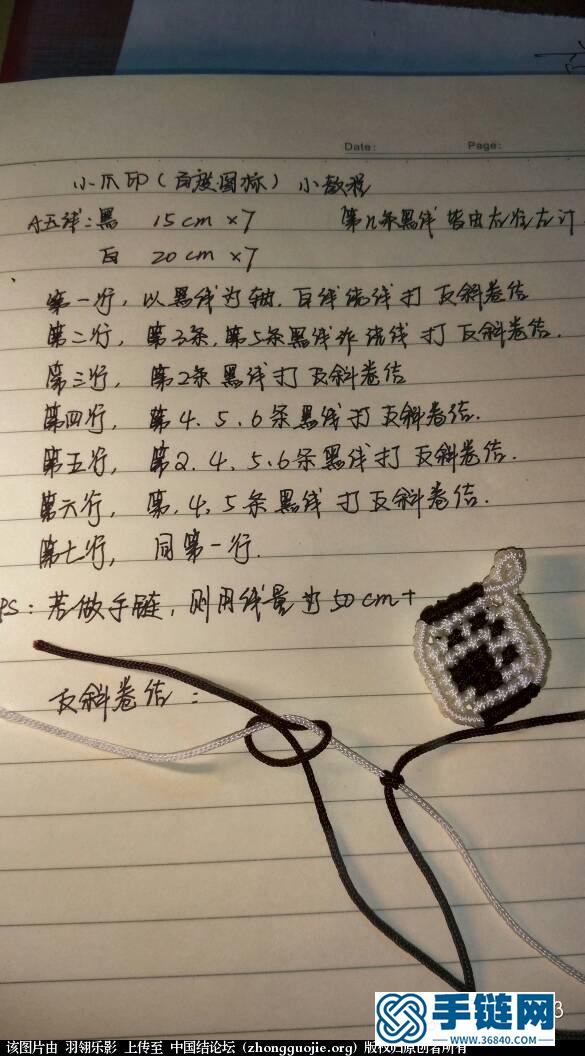 Date:
Page:
小爪印(百度图标)小教程
A五线:黑 15cm ×7 第几条黑线皆由左往右计
白 20cm ×7
第一行，以黑线为轴，白线绕线打反斜卷结
第二行，第3条，第5条黑线作绕线打反斜卷结.
第三行，第2条黑线打反斜卷结
第四行，第4、5、6条黑线打反斜卷结.
第五行，第2、4、5、6条黑线打反斜卷结.
第六行，第、4、5条黑线打反斜卷结.
第七行，同第一行.
PS:若做手链，则用线量为50cm+
反斜卷结:
3
手链网
www.36840.com
该图片由 羽翎乐影 上传至 中国结论坛 (zhongguojie.org) 版权归原创者所有